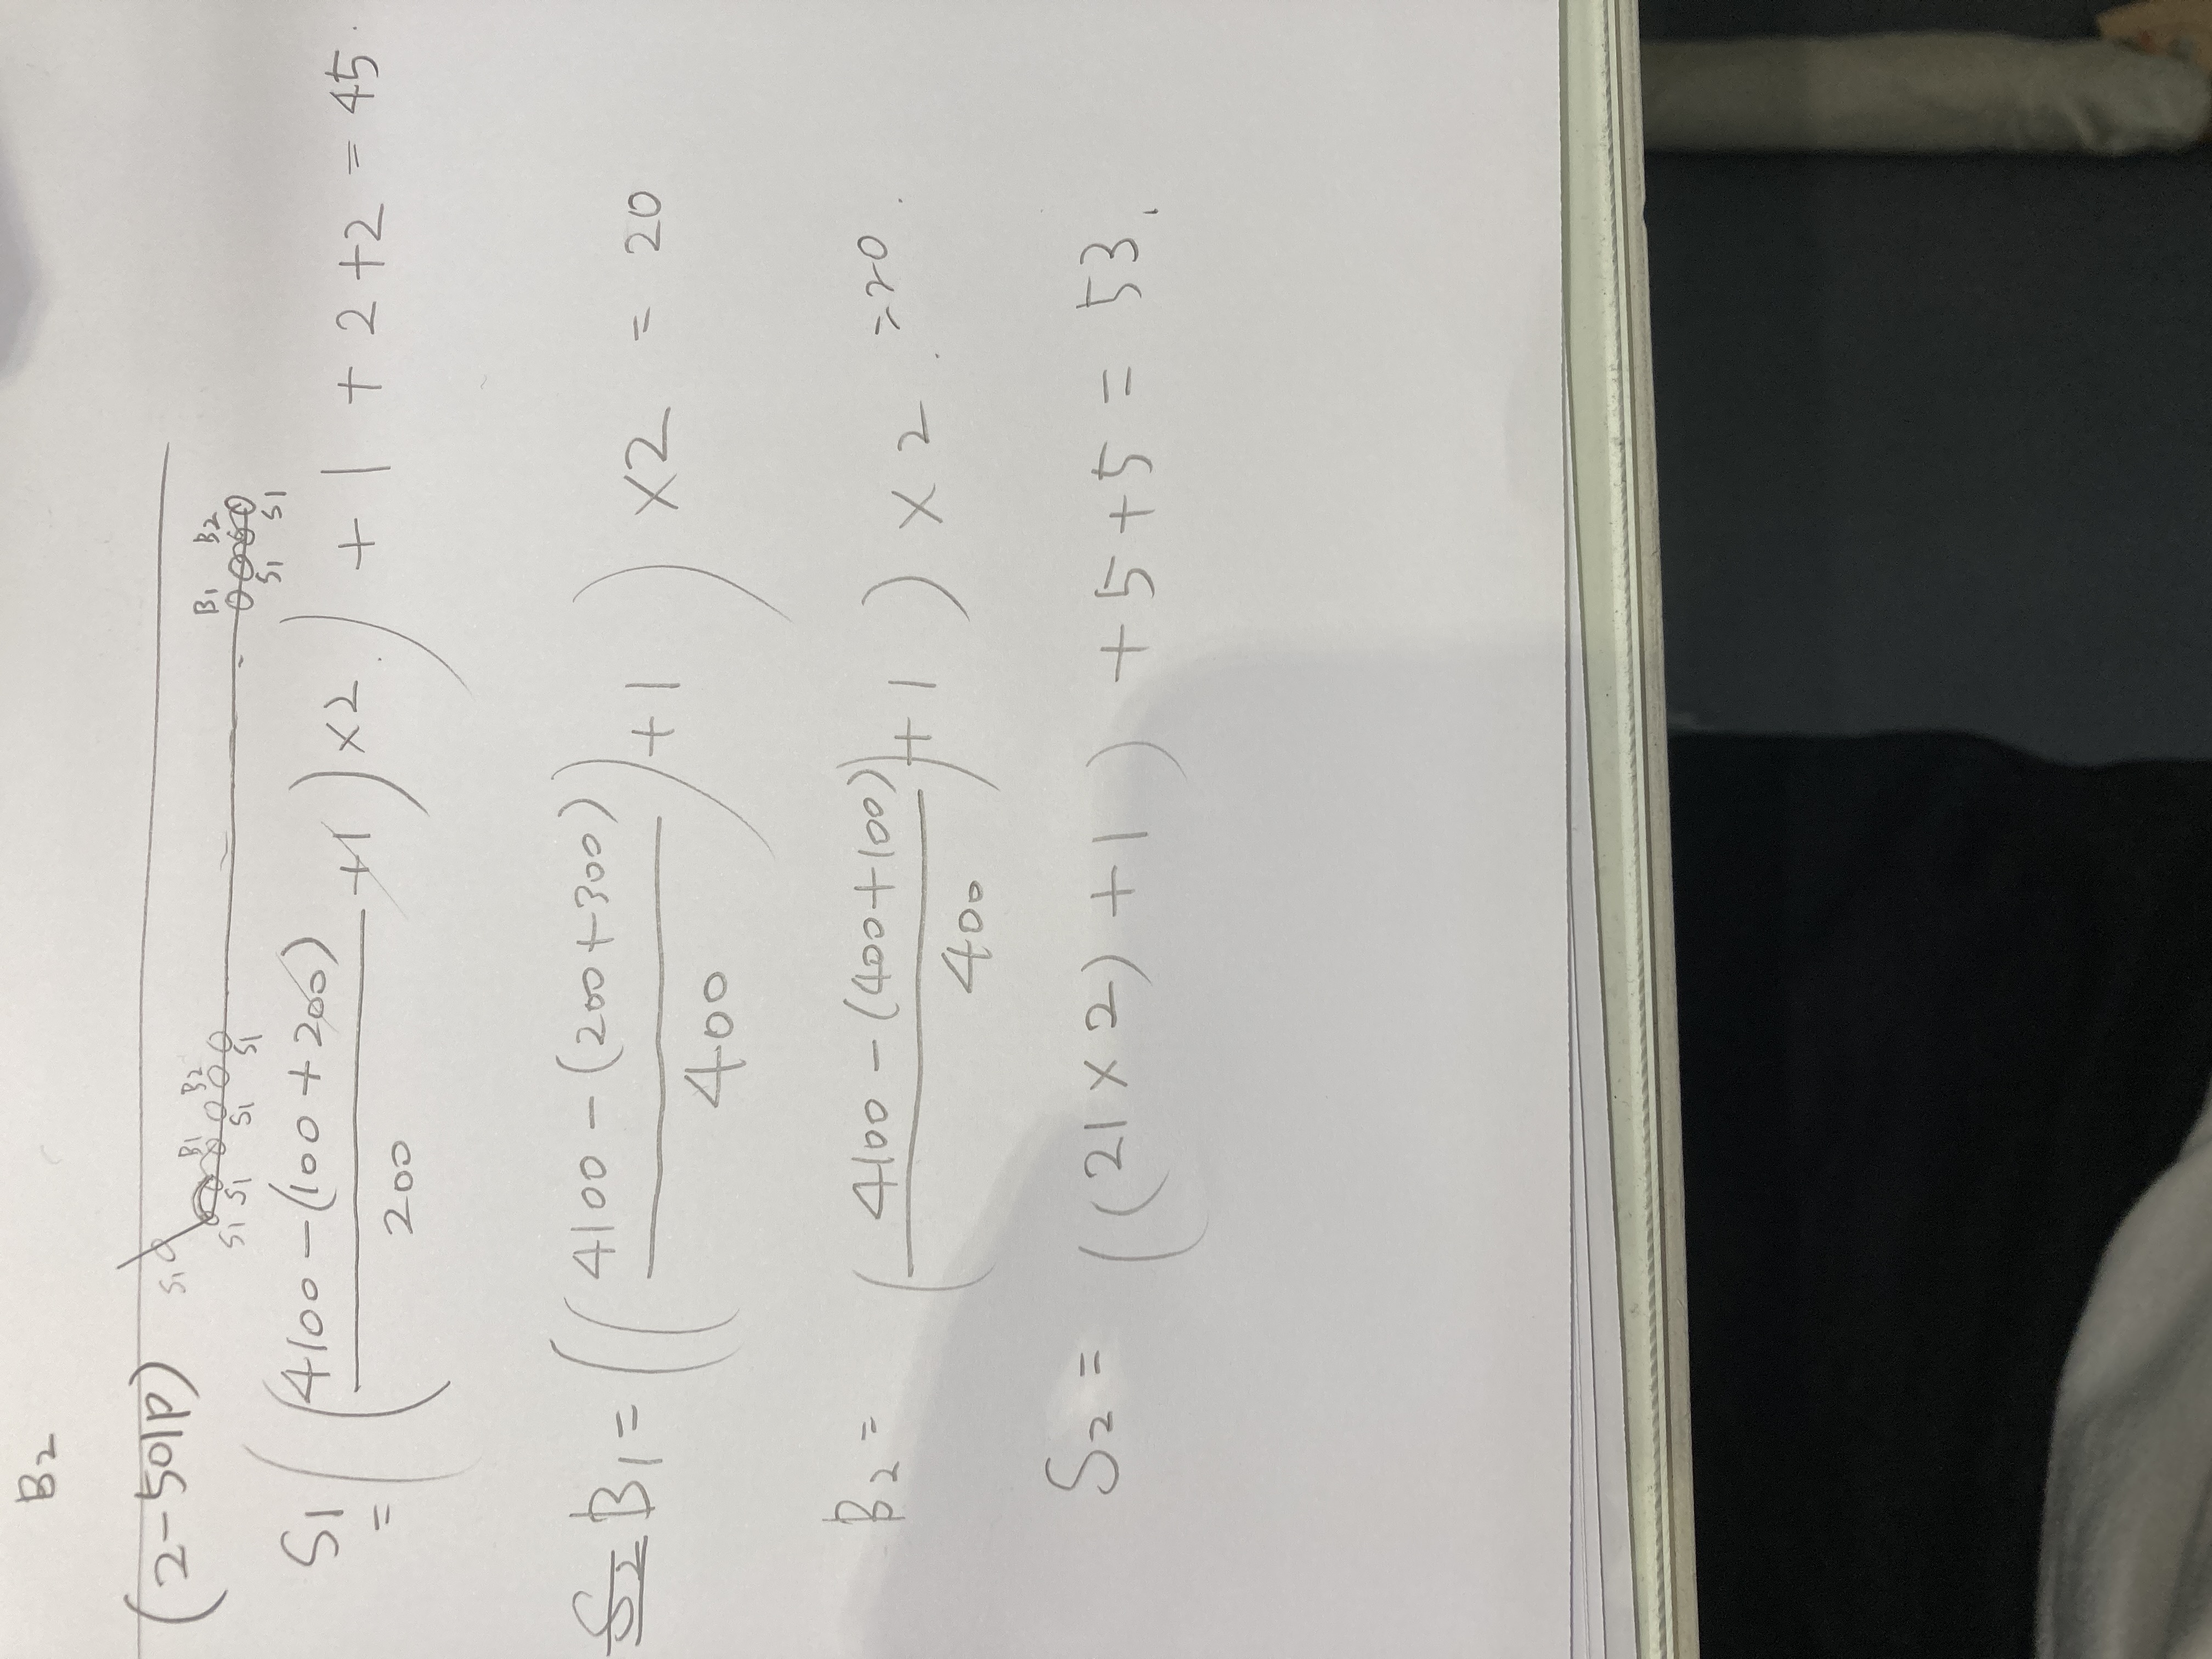 B2
(2-501P)
S1 B1 B2 B1 B2
S1 S1 S1 S1 S1 S1
S1 = ((4100-(100+200) / 200 +1)×2) + 1 + 2 +2 = 45.
S2 B1 = ((4100-(200+300) / 400) +1) ×2 = 20
B2 = (4100-(400+100) / 400) +1) ×2 = 20.
S2 = ((21×2)+1) +5+5 = 53.